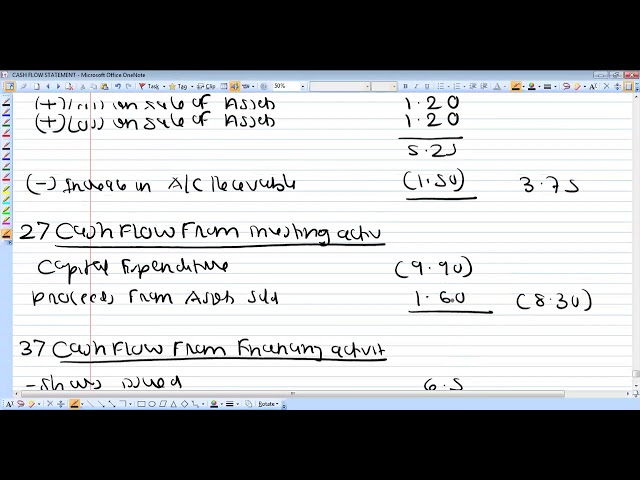 CASH FLOW STATEMENT - Microsoft Office OneNote
Task Tag Clip 50%
(+) Loss on sale of Assets 1.20
(+) Loss on sale of Assets 1.20
5.25
(-) Increase in A/C Receivable (1.50) 3.75
27 Cash Flow From investing activ
Capital Expenditure (9.90)
Proceeds From Assets sold 1.60 (8.30)
37 Cash Flow From Financing activit
- Shares issued 6.5
Rotate